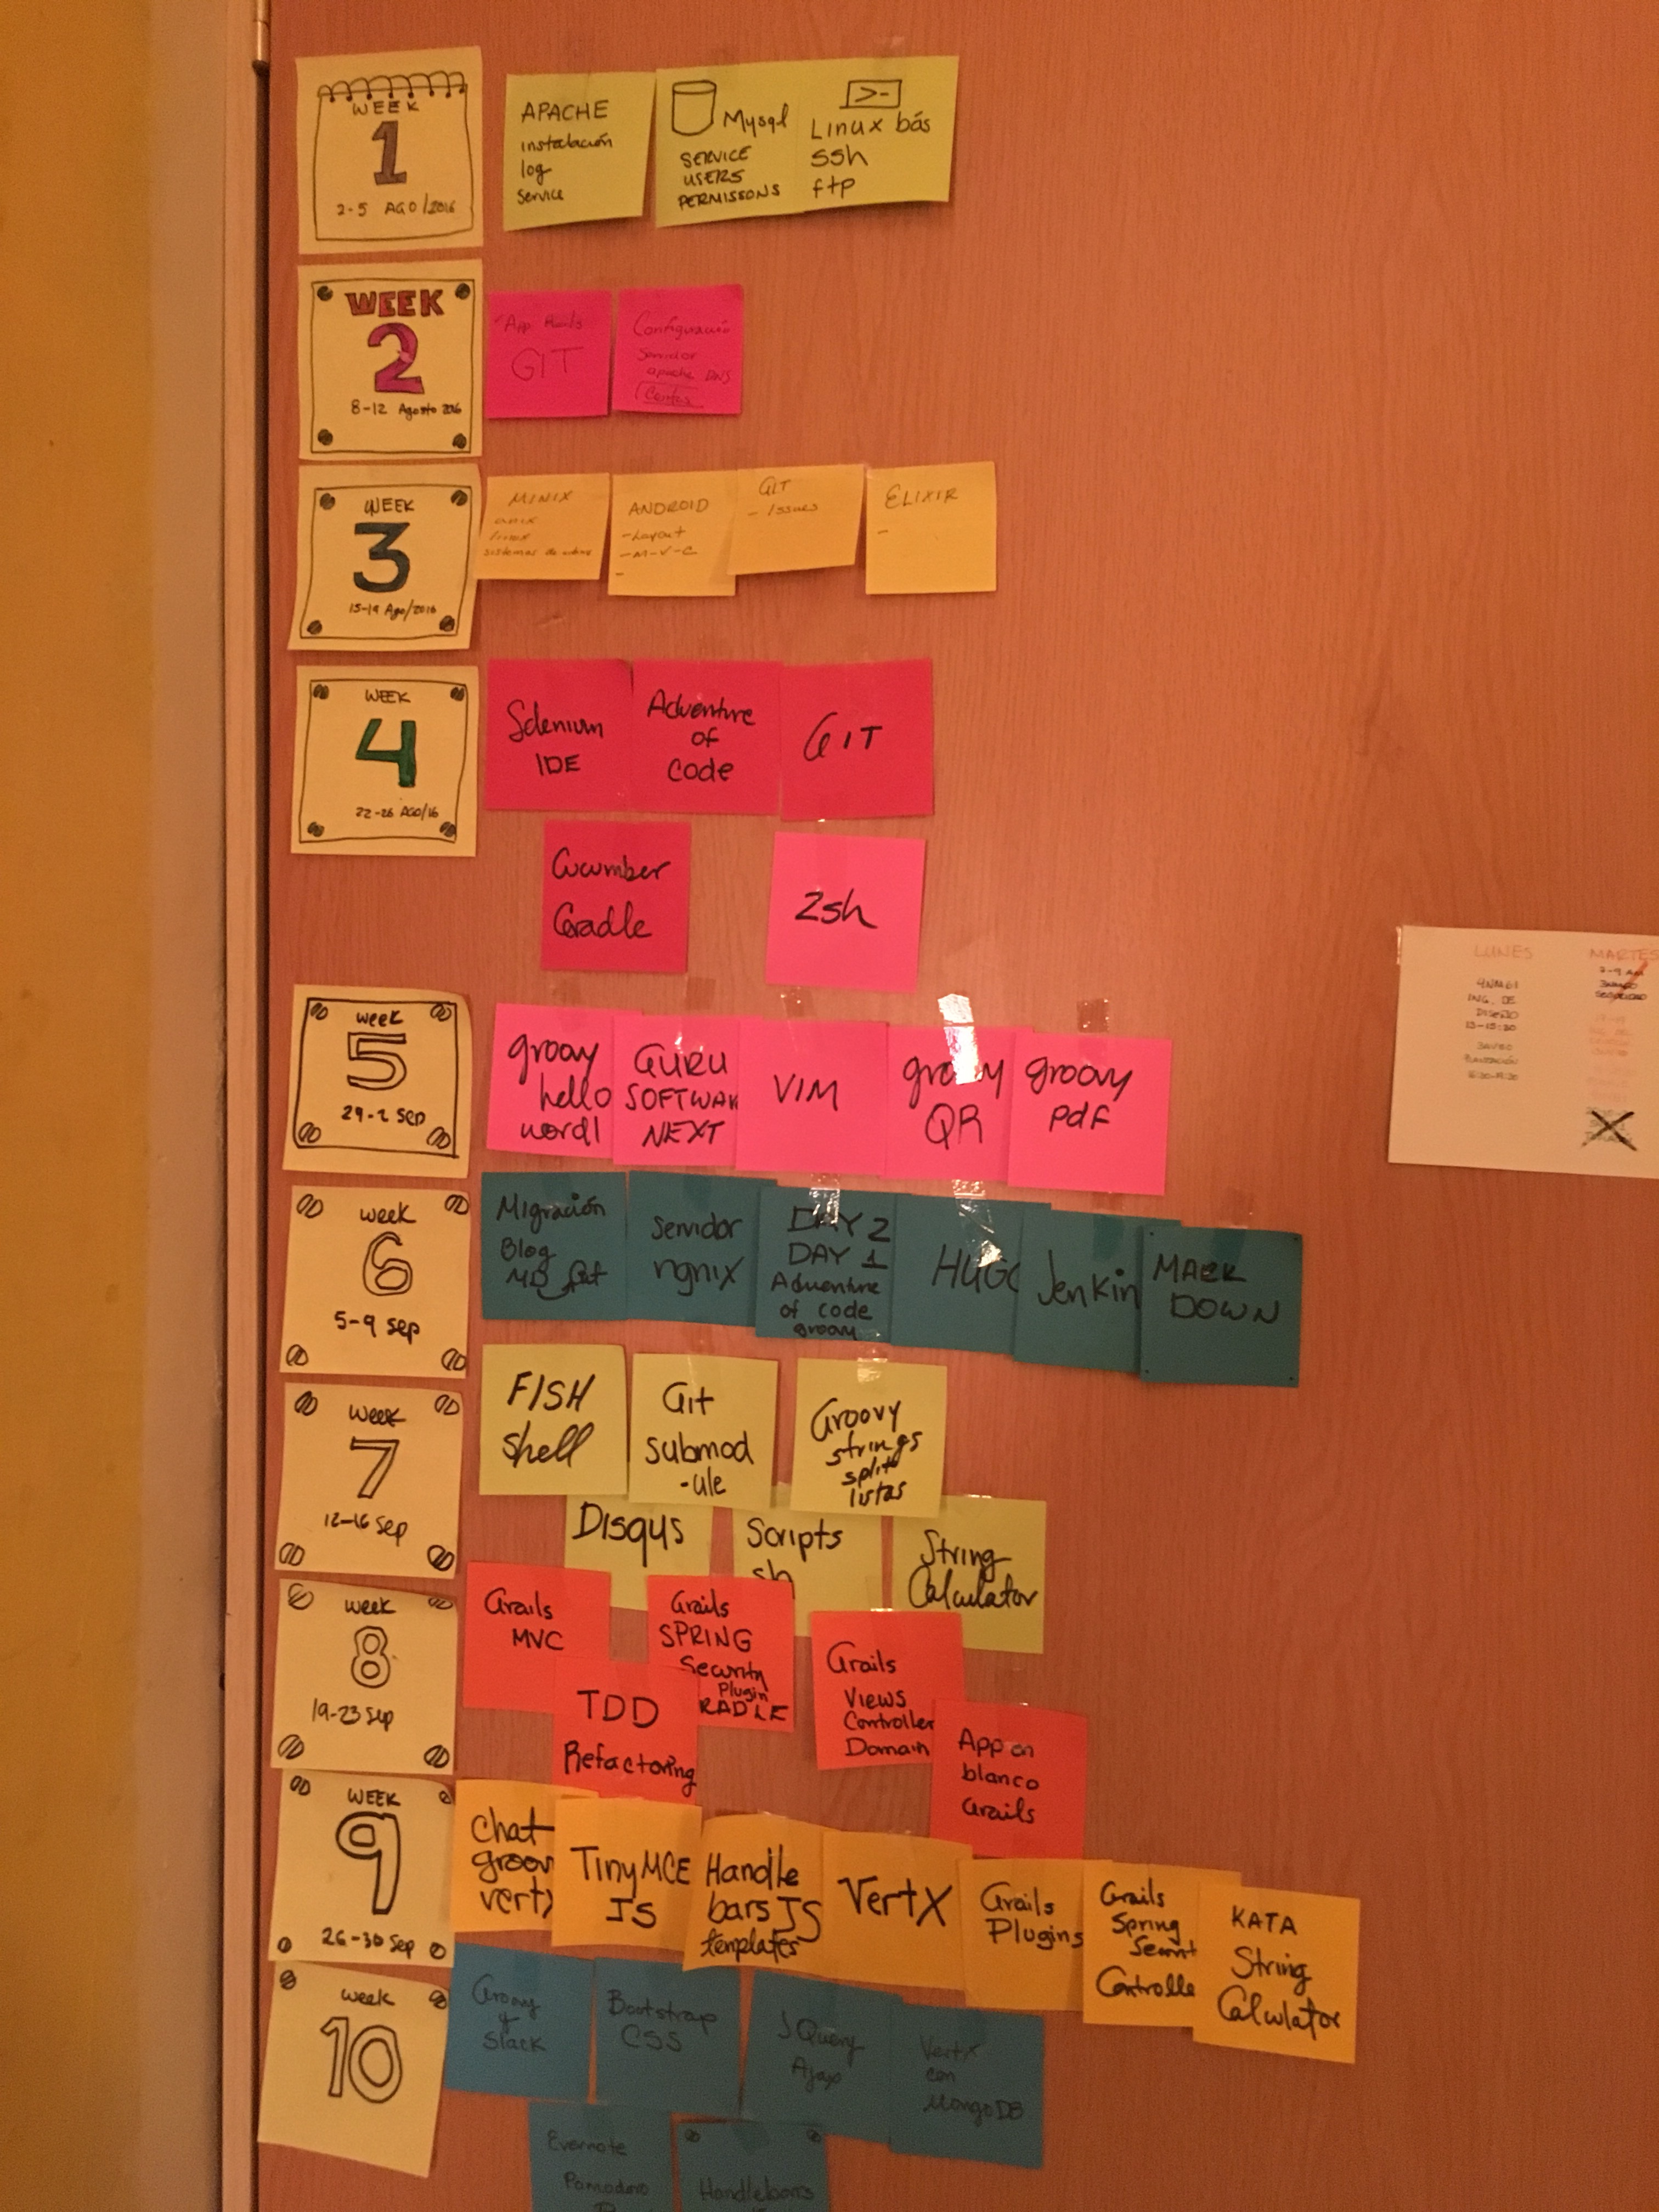 WEEK
1
2-5 AGO/2016
APACHE
instalación
log
service
Mysql
SERVICE
USERS
PERMISSONS
>-
Linux bás
ssh
ftp
WEEK
2
8-12 Agosto 2016
App Rails
GIT
Configuración
Servidor
apache DNS
Centos
WEEK
3
15-19 Ago/2016
MINIX
unix
linux
sistemas de
ANDROID
-Layout
-M-V-C
-
GIT
- Issues
ELIXIR
-
WEEK
4
22-26 AGO/16
Selenium
IDE
Adventure
of
code
GIT
Cucumber
Gradle
zsh
week
5
29-2 sep
groovy
hello
wordl
GURU
SOFTWAR
NEXT
VIM
groovy
QR
groovy
pdf
week
6
5-9 sep
Migración
Blog
MD
servidor
ngnix
DAY 2
DAY 1
Adventure
of code
groovy
HUGO
Jenkin
MARK
DOWN
week
7
12-16 sep
FISH
shell
Git
submod
-ule
Groovy
strings
split
listas
Disqus
Scripts
sh
String
Calculator
week
8
19-23 sep
Grails
MVC
Grails
SPRING
Security
Plugin
RADLE
TDD
Refactoring
Grails
Views
Controller
Domain
App en
blanco
Grails
WEEK
9
26-30 sep
chat
groov
vertx
TinyMCE
JS
Handle
bars JS
templates
VertX
Grails
Plugins
Grails
Spring
Securit
Controlle
KATA
String
Calculator
week
10
Groovy
y
Slack
Bootstrap
CSS
JQuery
Ajax
VertX
con
MongoDB
Evernote
Pomodoro
Handlebars
LUNES
ING. DE
DISEÑO
13-15:30
MARTES
7-9 AM